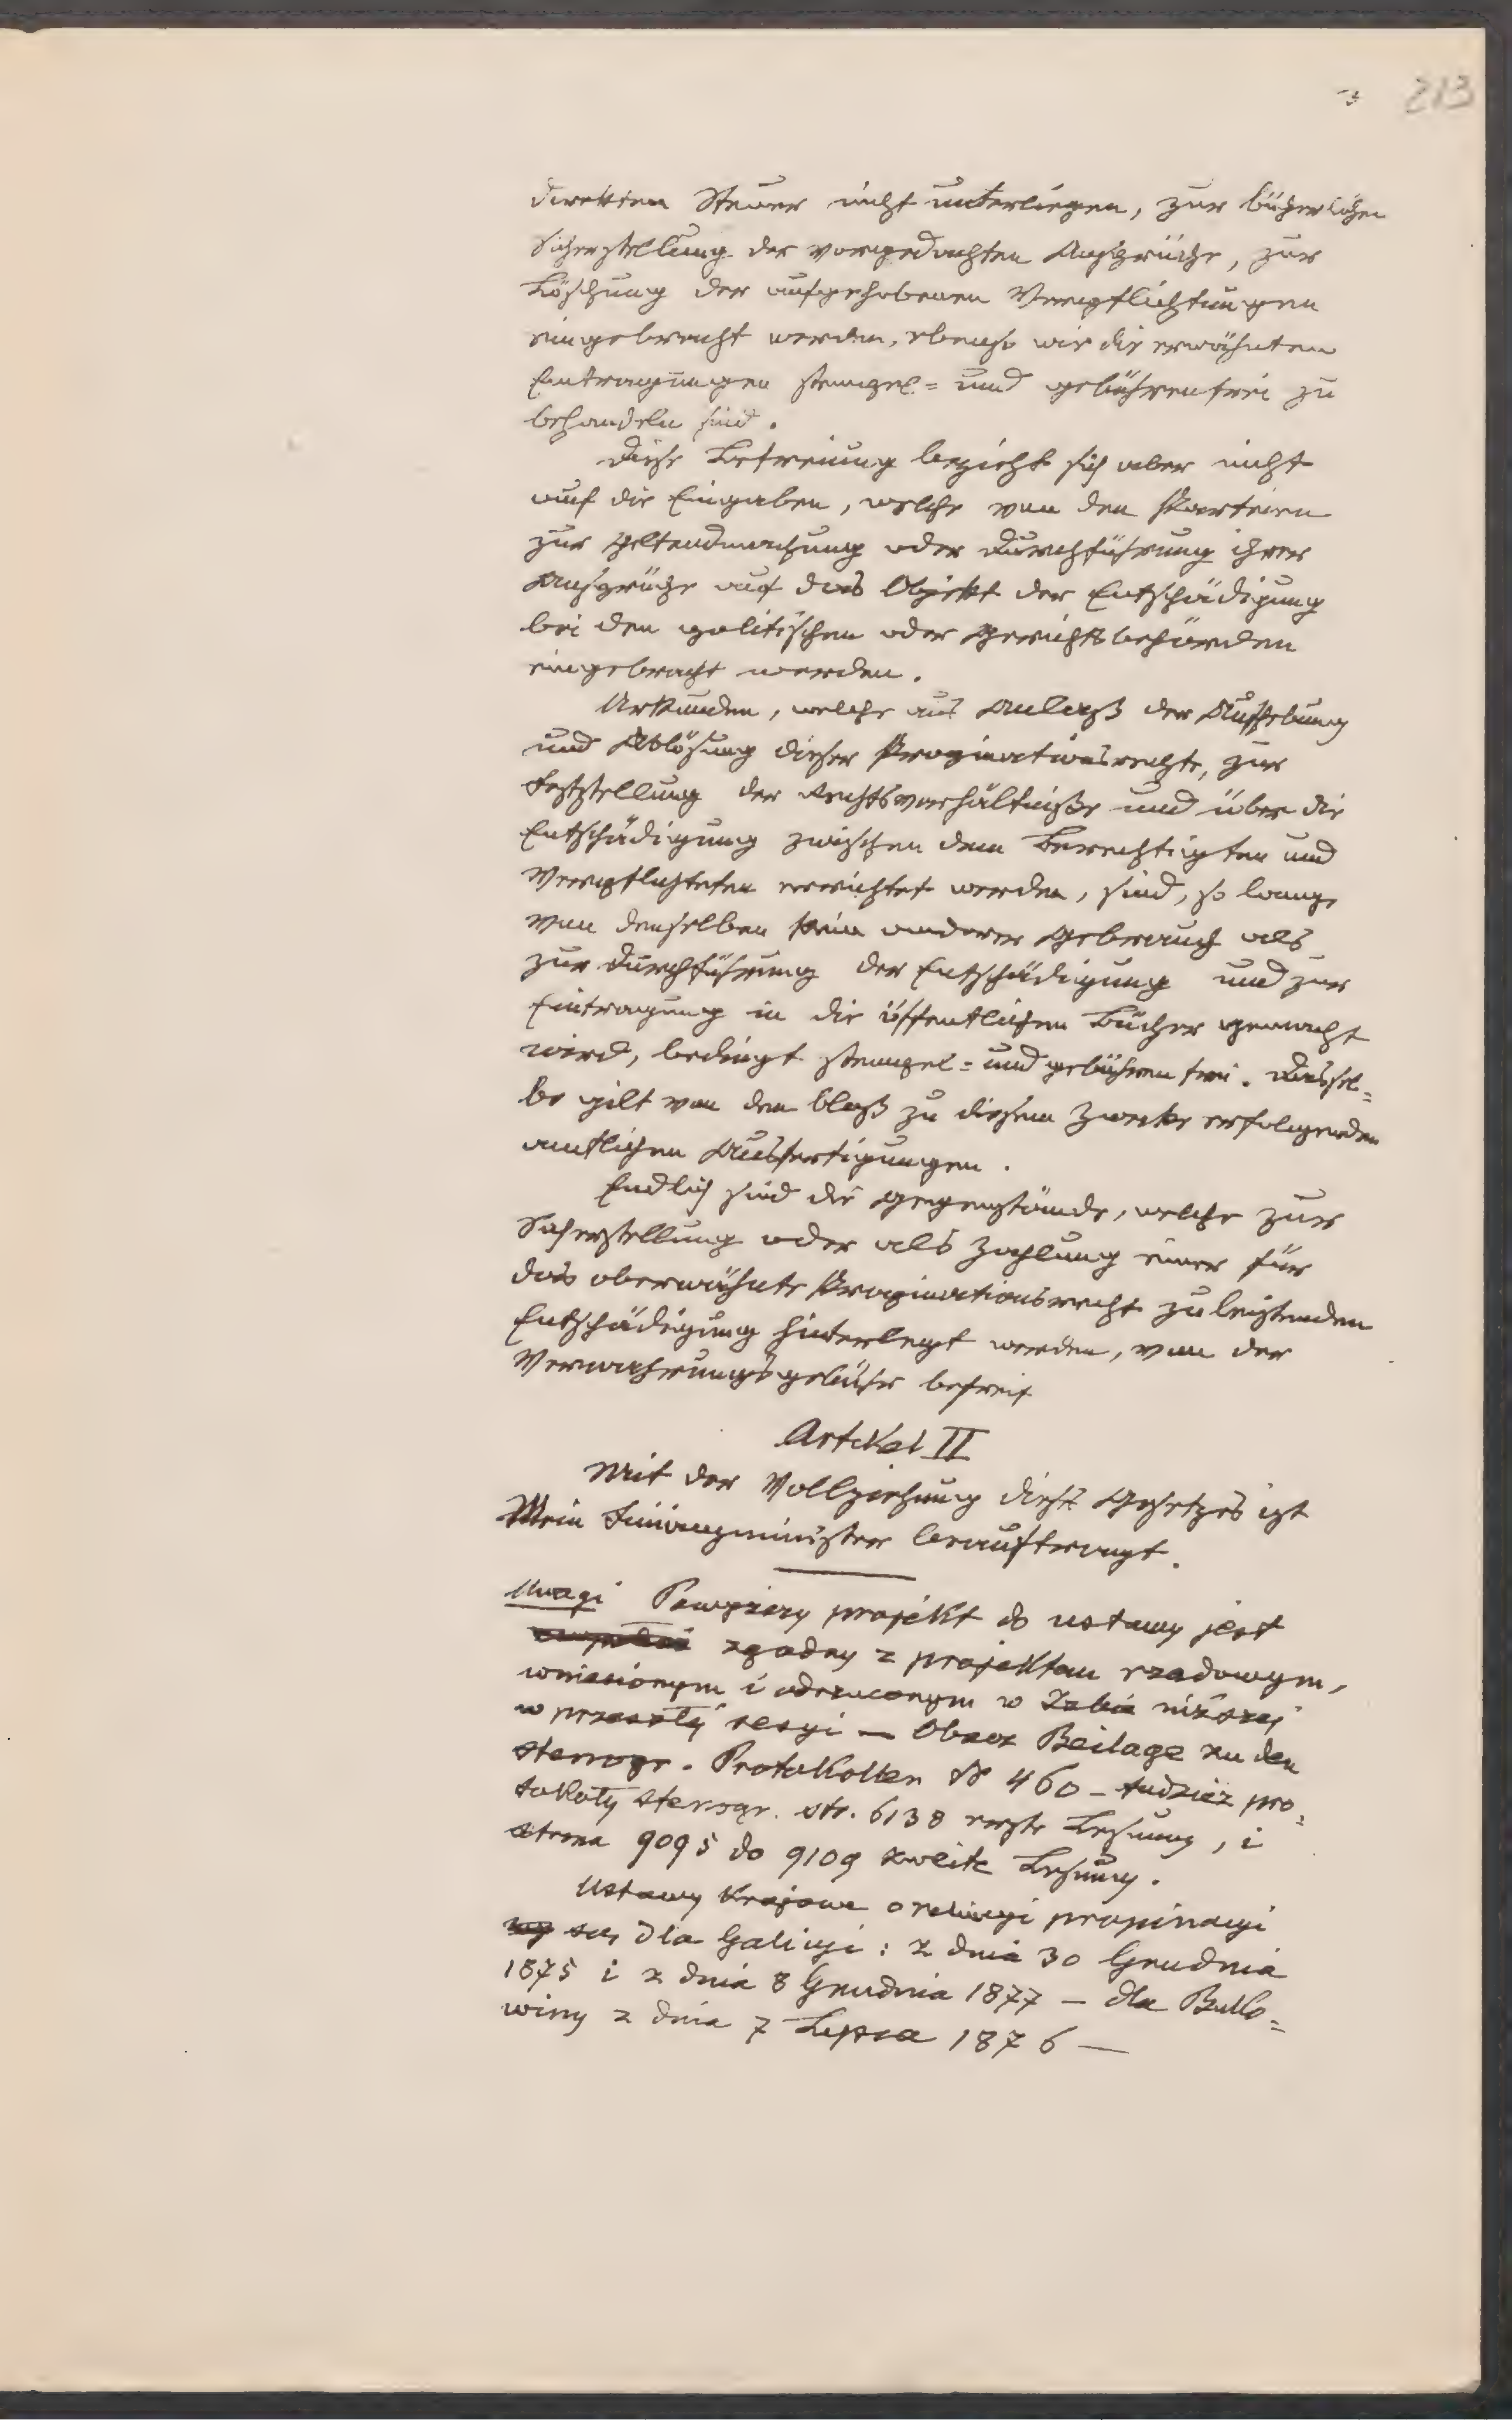 213
direkten Steuer nicht unterliegen, zur bücherlichen
Sicherstellung der vorgedachten Ansprüche, zur
Löschung der aufgehobenen Verpflichtungen
eingebracht werden, ebenso wie die erwähnten
Eintragungen stempel= und gebührenfrei zu
behandeln sind.
Diese Befreiung bezieht sich aber nicht
auf die Eingaben, welche von den Parteien
zur Geltendmachung oder Durchführung ihrer
Ansprüche auf das Objekt der Entschädigung
bei den politischen oder Gerichtsbehörden
eingebracht werden.
Urkunden, welche aus Anlaß der Aufhebung
und Ablösung dieser Propinationsrechte, zur
Feststellung der Rechtsverhältniße und über die
Entschädigung zwischen dem Berechtigten und
Verpflichteten errichtet werden, sind, so lange
von denselben kein anderer Gebrauch als
zur Durchführung der Entschädigung und zur
Eintragung in die öffentlichen Bücher gemacht
wird, bedingt stempel= und gebührenfrei. Dassel=
be gilt von den bloß zu diesem Zwecke erfolgenden
amtlichen Ausfertigungen.
Endlich sind die Gegenstände, welche zur
Sicherstellung oder als Zahlung einer für
das oberwähnte Propinationsrecht zu leistenden
Entschädigung hinterlegt werden, von der
Verwahrungsgebühr befreit
Artikel II
Mit der Vollziehung dieses Gesetzes ist
Mein Finanzminister beauftragt.
Uwagi Powyższy projekt do ustawy jest
zgodny z projektem rządowym,
wniesionym i odrzuconym w Izbie niższej
w przeszłej sesyi — Obacz Beilage zu den
stenogr. Protokollen № 460 – tudzież pro=
tokoły stenogr. str. 6138 erste Lesung, i
strona 9095 do 9109 zweite Lesung.
Ustawy krajowe o relucyi propinacyi
są dla Galicyi: z dnia 30 Grudnia
1875 i z dnia 8 Grudnia 1877 — dla Buko=
winy z dnia 7 Lipca 1876 —